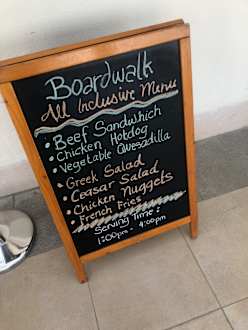 Boardwalk
All Inclusive Menu
• Beef Sandwhich
• Chicken Hotdog
• Vegetable Quesadilla
• Greek Salad
• Ceasar Salad
• Chicken Nuggets
• French Fries
Serving Time:
1:00pm - 4:00pm